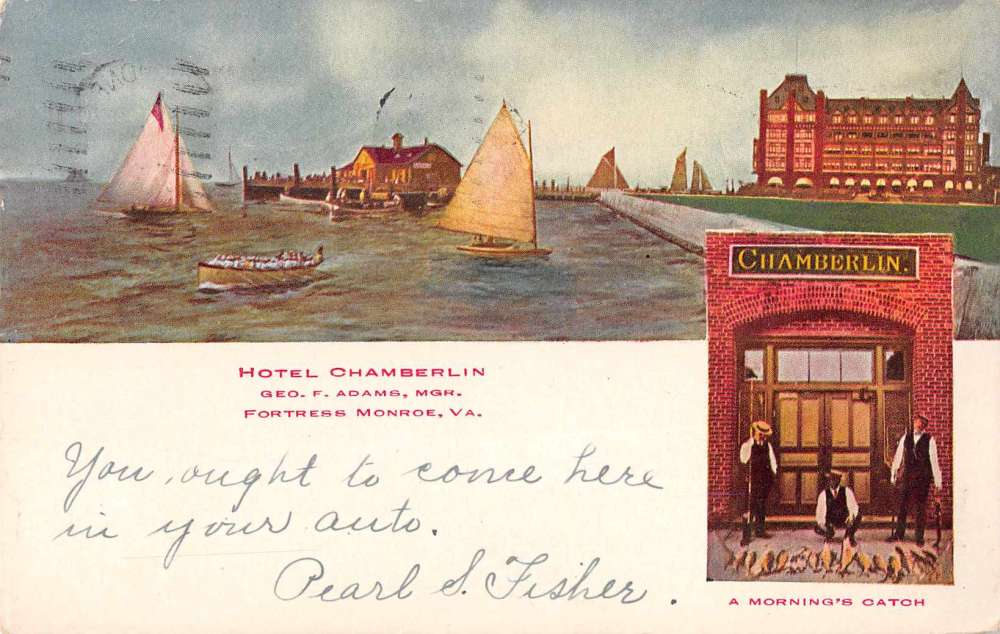 CHAMBERLIN.
HOTEL CHAMBERLIN
GEO. F. ADAMS, MGR.
FORTRESS MONROE, VA.
You ought to come here
in your auto.
Pearl S. Fisher.
A MORNING'S CATCH